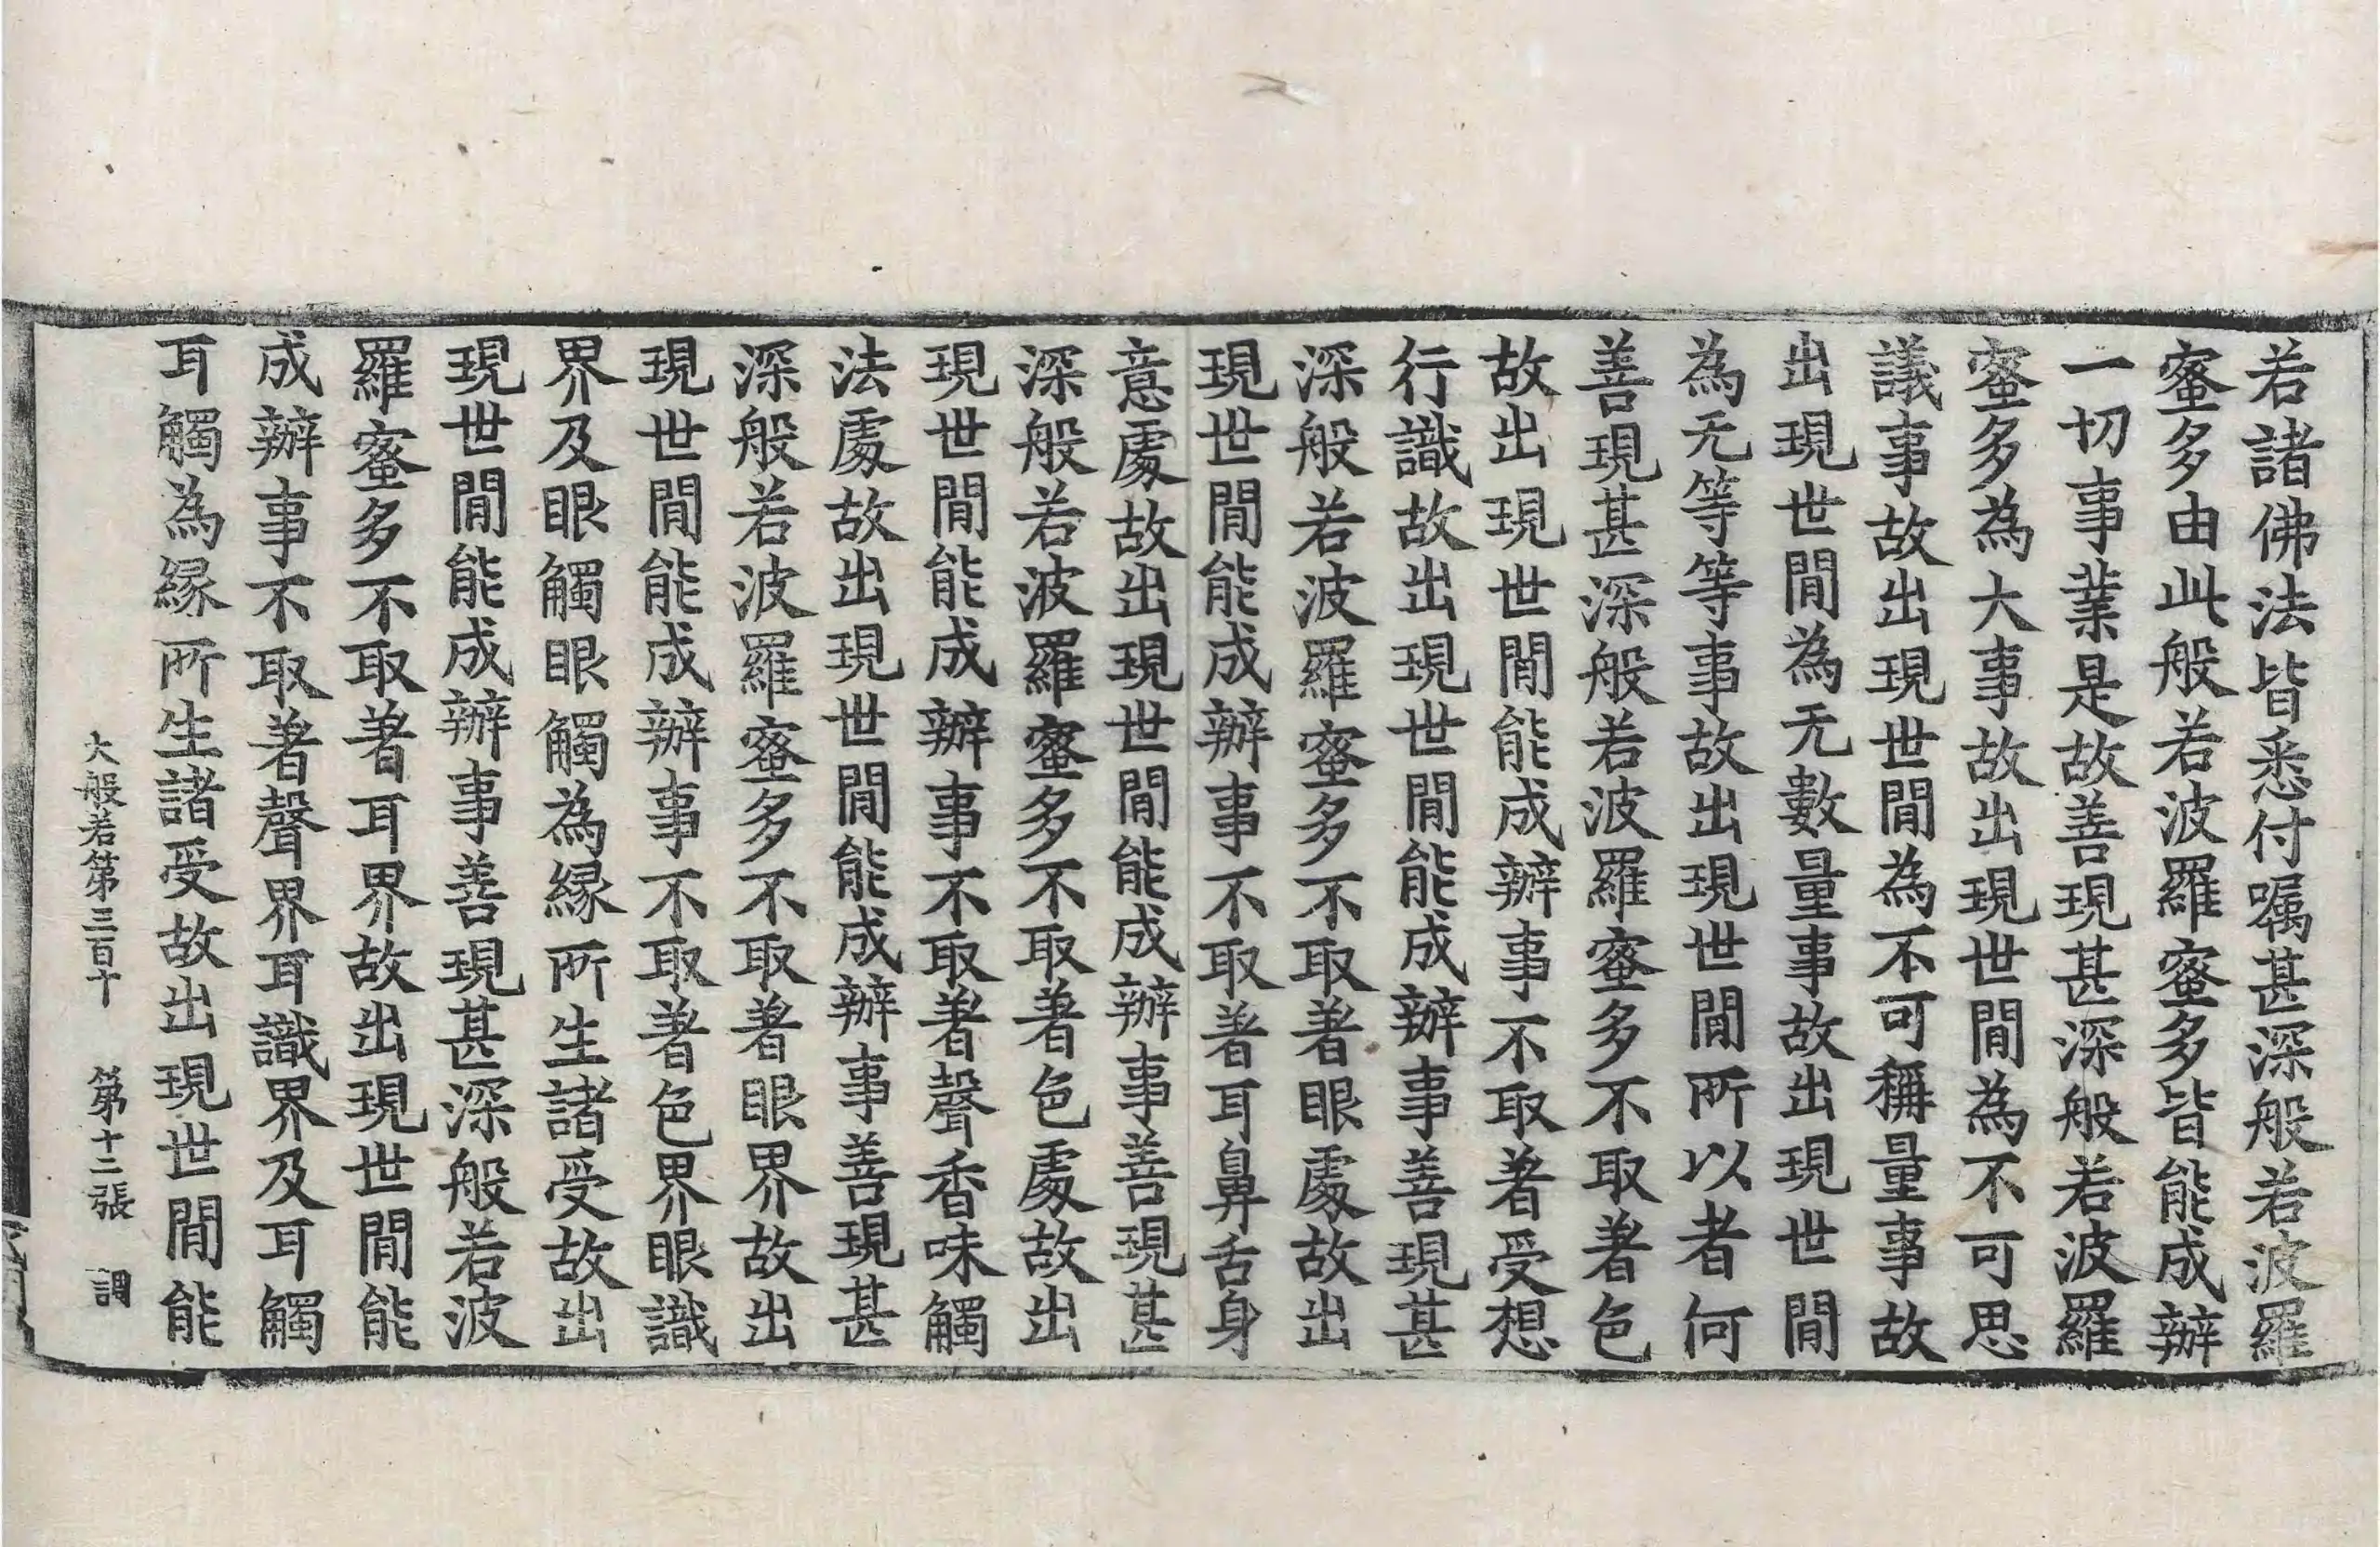 若諸佛法皆悉付嘱甚深般若波羅
蜜多由此般若波羅蜜多皆能成辦
一切事業是故善現甚深般若波羅
蜜多為大事故出現世間為不可思
議事故出現世間為不可稱量事故
出現世間為无數量事故出現世間
為无等等事故出現世間所以者何
善現甚深般若波羅蜜多不取著色
故出現世間能成辦事不取著受想
行識故出現世間能成辦事善現甚
深般若波羅蜜多不取著眼處故出
現世間能成辦事不取著耳鼻舌身
意處故出現世間能成辦事善現甚
深般若波羅蜜多不取著色處故出
現世間能成辦事不取著聲香味觸
法處故出現世間能成辦事善現甚
深般若波羅蜜多不取著眼界故出
現世間能成辦事不取著色界眼識
界及眼觸眼觸為緣所生諸受故出
現世間能成辦事善現甚深般若波
羅蜜多不取著耳界故出現世間能
成辦事不取著聲界耳識界及耳觸
耳觸為緣所生諸受故出現世間能
大般若第三百十 第十二張 調